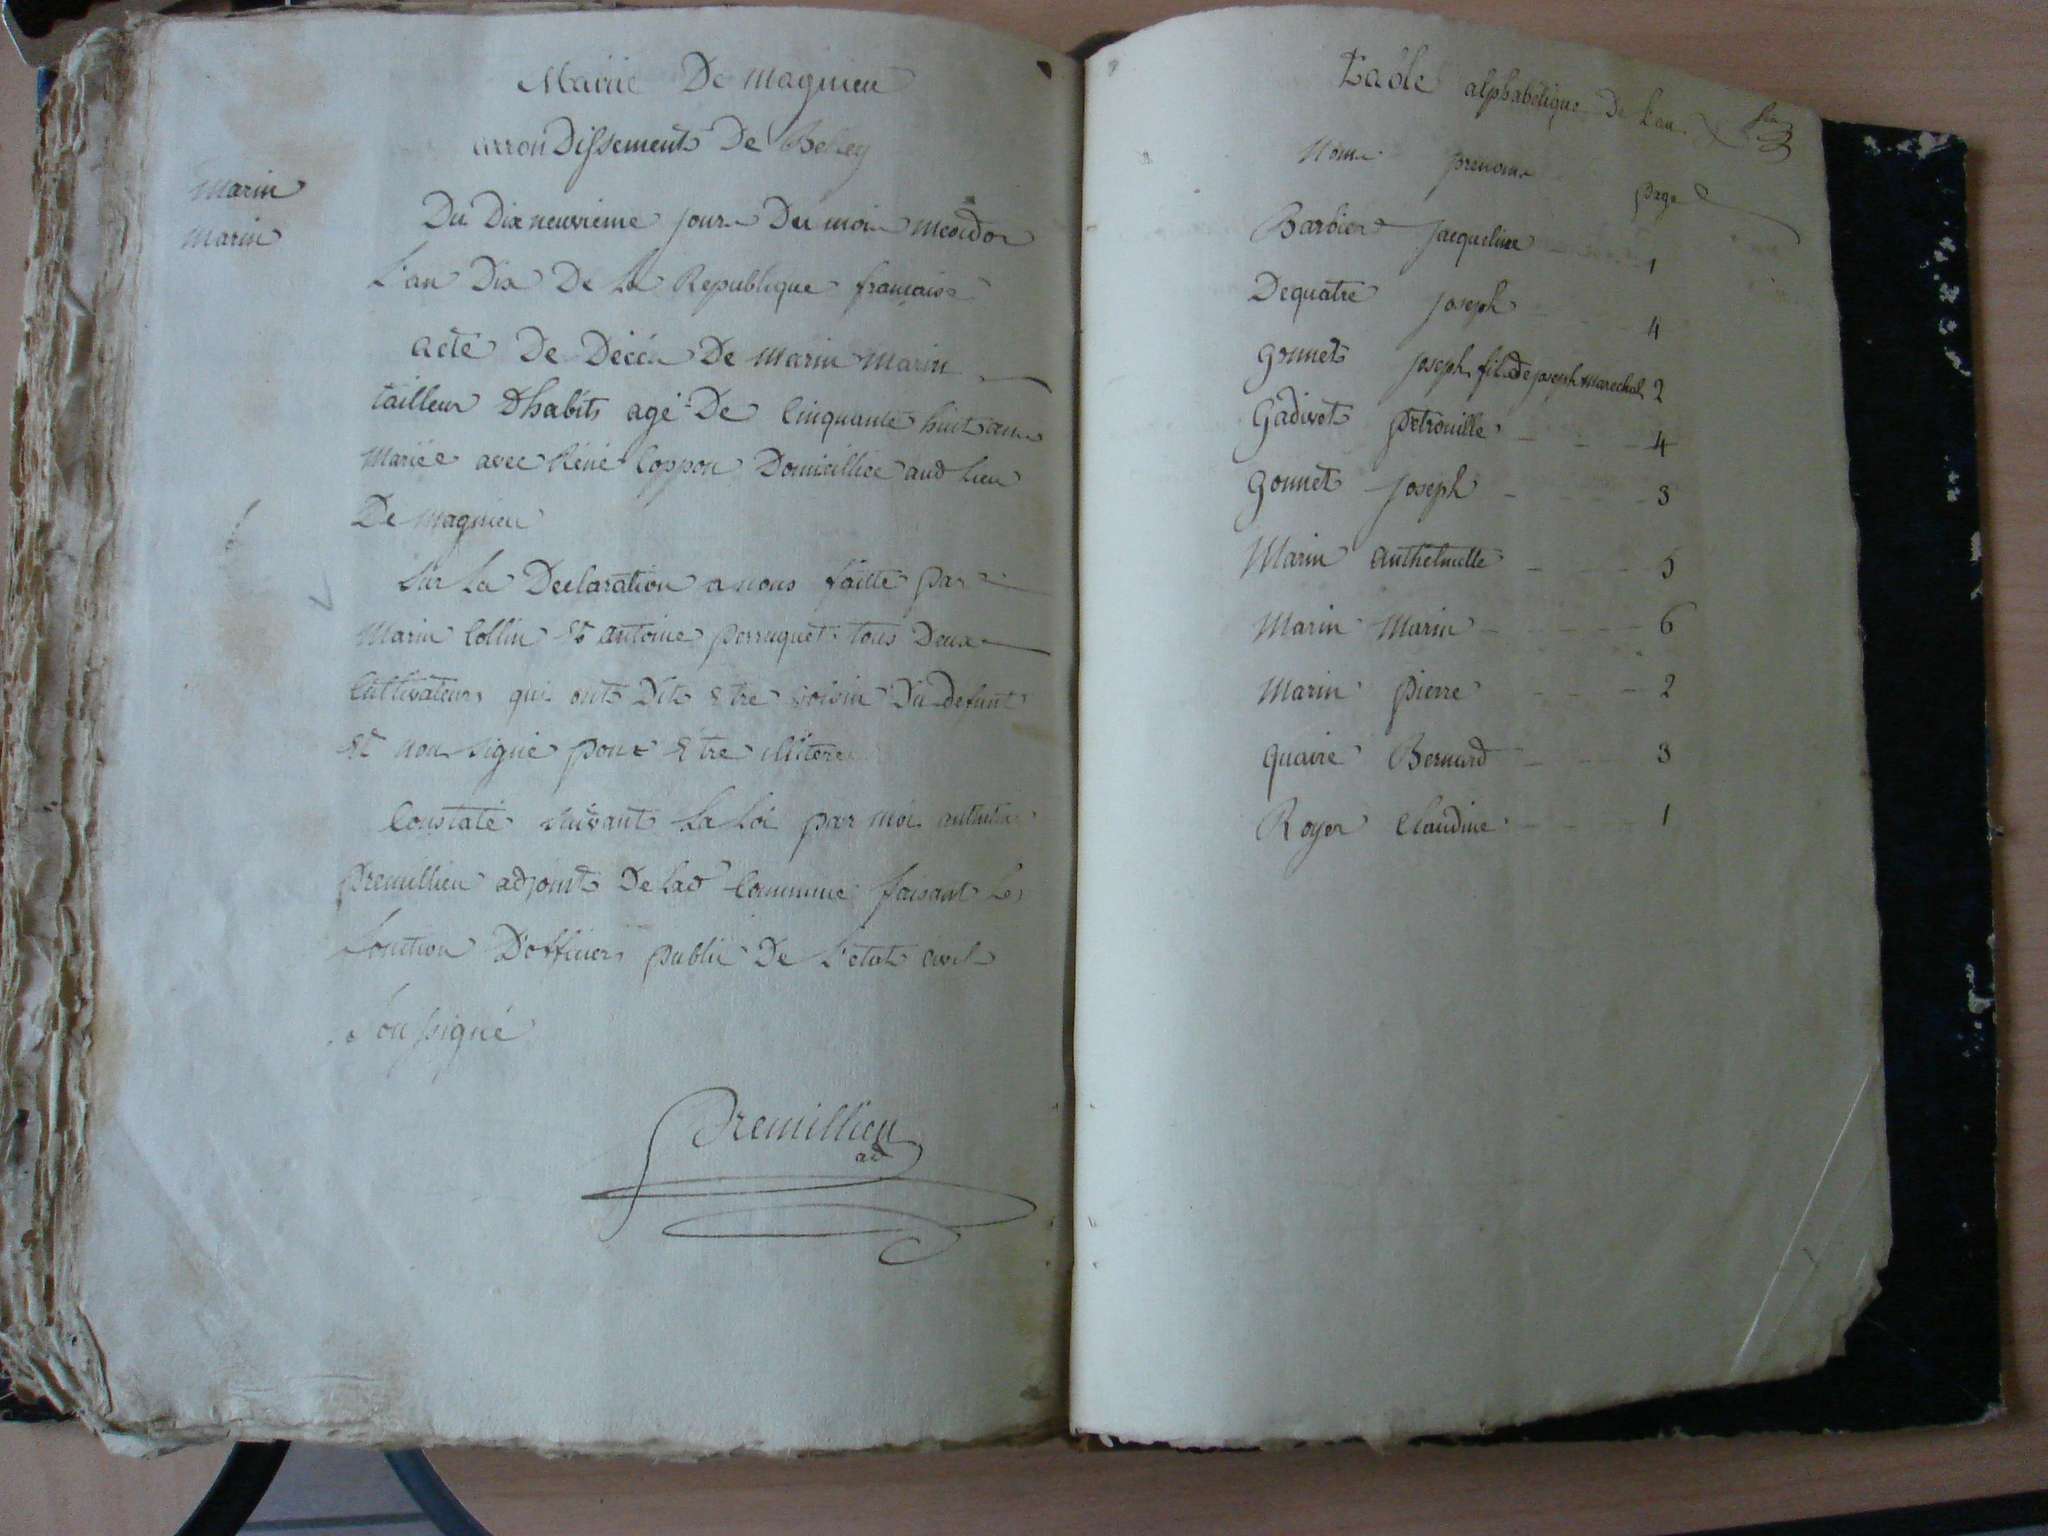 Mairie De magnieu
arrondissement De Belley
Marin
Marin
Du Dix neuvieme jour Du mois messidor
L'an Dix De La Republique francaise
acte De Décès De marin marin
tailleur Dhabits agé De Cinquante huit ans
Mariée avec Réné Coppon Domicilliée aud Lieu
De magnieu
Sur La Declaration a nous faitte par
Marin Collin Et antoine perruquet tous Deux
Cultivateurs qui ont Dit Etre voisin Du defunt
Et non signé pour Etre illiteré
Constaté suivant La Loi par moi
premillieu adjoint De lad Commune faisant Les
fonction D'officier public De L'etat civil
Soussigné
Premillieu
ad
Table alphabetique De l'an X
Noms prenoms page
Barbier jacqueline 1
Dequatre joseph 4
gonnet joseph fils de joseph marechal 2
gadivet petronille 4
gonnet joseph 3
Marin anthelmette 5
Marin Marin 6
Marin pierre 2
quaire Bernard 3
Royer Claudine 1